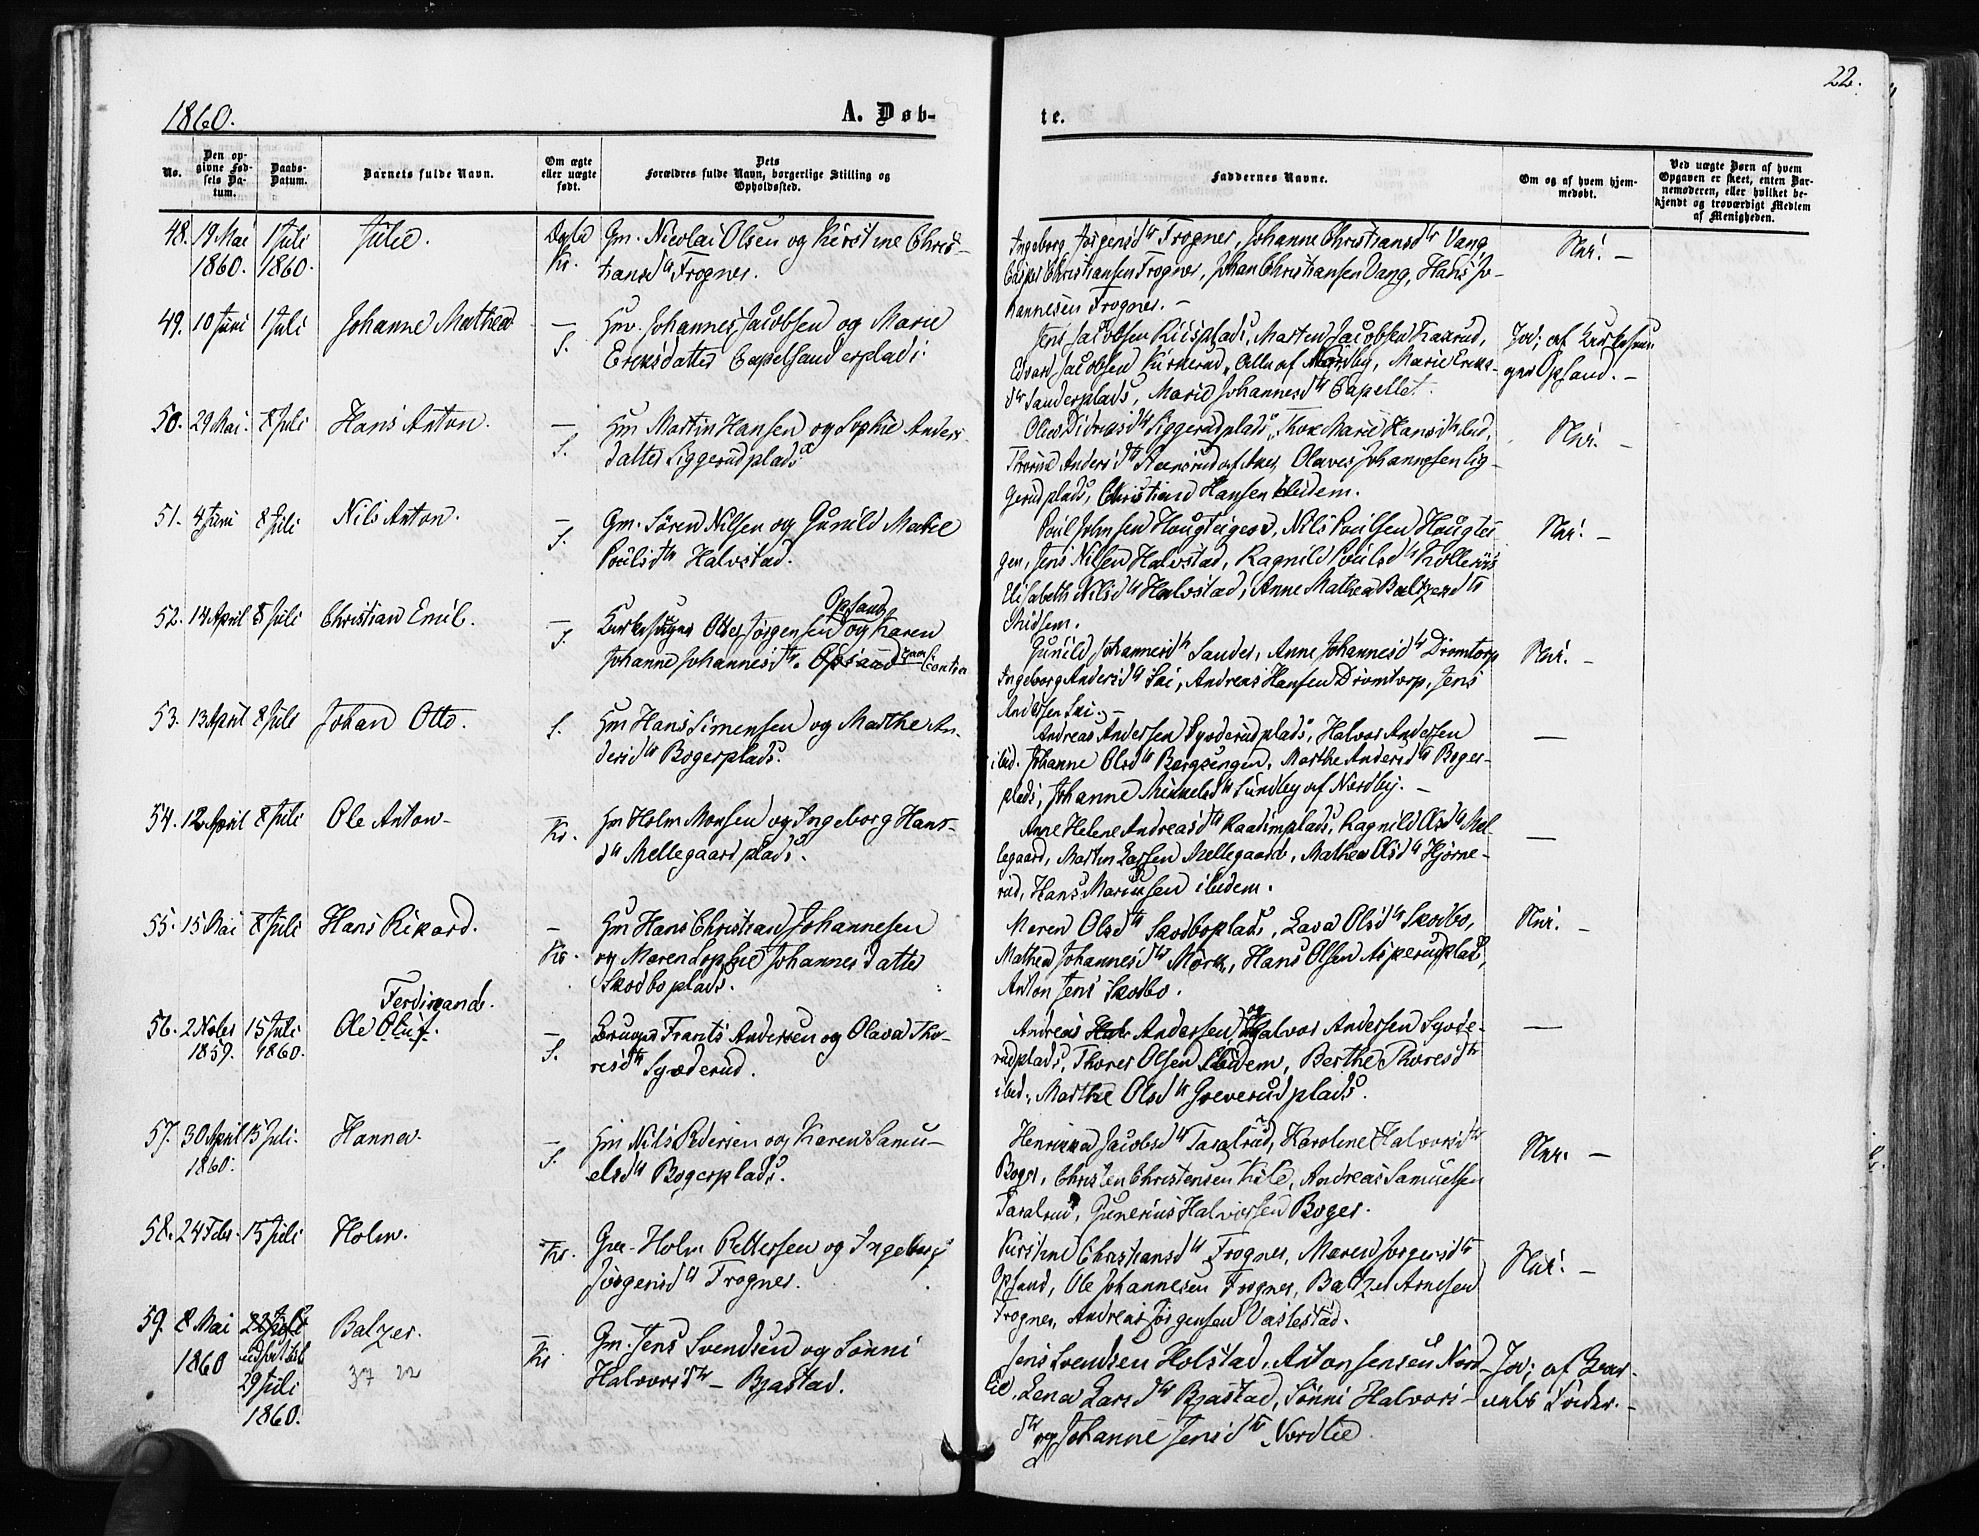 22.
1860.
A. Døb-
te.
No.
Den op-
givne Fød-
sels Da-
tum.
Daabs-
Datum.
Barnets fulde Navn.
Om ægte
eller uægte
født.
Dets
Forældres fulde Navn, borgerlige Stilling og
Opholdssted.
Faddernes Navne.
Om og af hvem hjem-
medøbt.
Ved uægte Børn af hvem
Opgaven er skeet, enten Bar-
nemoderen, eller hvilket be-
kjendt og troværdigt Medlem
af Menigheden.
48. 19 Mai 1860. 1 Juli 1860. Julie. Kr.
Gm. Nicolai Olsen og Kirstine Chris-
tiansdtr Frogner.
Ingeborg Jørgensdtr Frogner, Johanne Christiansdtr Vang,
Casper Christiansen Frogner, Johan Christiansen Vang, Hans Jo-
hannesen Frogner. -
Nei. -
49. 10 Juni 1 Juli Johanne Mathea - S.
Hm. Johannes Jacobsen og Marie
Eriksdatter Capelsanderplads.
Jens Jacobsen Riisplads, Marten Jacobsen Kaxrud,
Edvard Jacobsen Kirkerud, Alle af Nordby, Marie Eriks-
dtr Sanderplads, Marie Johannesdtr Capellet.
Jo; af
Opsand. -
50. 29 Mai 8 Juli Hans Anton. - S.
Hm Martin Hansen og Sophie Anders-
datter Siggerudplads.
Olea Didriksdtr Siggerudplads, Marie Hansdtr ibid,
Andersdtr af Aas, Olaves Johannesen Sig-
gerudplads, Christian Hansen ibidem.
Nei. -
51. 4 Juni 8 Juli Nils Anton. - S.
Gm. Søren Nilsen og Gunild Marie
Poulsdtr Halvstad.
Poul Johnsen Hougteigen, Nils Poulsen Hougtei-
gen, Jens Nilsen Halvstad, Ragnild Poulsdtr
Elisabeth Nilsdtr Halvstad, Anne Mathea Baltzersdtr
Nei. -
52. 14 April 8 Juli Christian Emil. - S.
Opsand
Otter Jørgensen og Karen
Johanne Johannesdtr. Opsand
Gunild Johannesdtr Sander, Anne Johannesdtr Drømtorp
Ingeborg Andersdtr Ski, Andreas Hansen Drømtorp, Jens
Andersen Ski. -
Nei. -
53. 13 April 8 Juli Johan Otto. S.
Hm Hans Simensen og Marthe An-
dersdtr Bogerplads.
Andreas Andersen Syverudplads, Halvor Andersen
ibid. Johanne Olsdtr Bergsengen, Marthe Andersdtr Boger-
plads, Johanne Mikkelsdtr Sundby af Nordby. -
-
54. 12 April 8 Juli Ole Anton - Kr.
Hm Holm Monsen og Ingeborg Hans-
dtr Mellegaardplads.
Anne Helene Andreasdtr Raadimplads, Ragnild Olsdtr Mel-
legaard, Martin Larsen Mellegaard, Mathea Olsdtr Hjørne-
rud, Hans Mariusen ibidem.
-
55. 15 Mai 8 Juli Hans Rikard. - Kr.
Hm Hans Christian Johannesen
og Maren Sophie Johannesdatter
Skodboplads.
Maren Olsdtr Skodboplads, Lava Olsdtr Skodbo,
Mathea Johannesdtr Mørk, Hans Olsen Asperudplads,
Anton Jens Skodbo.
Nei. -
Ferdinand.
56. 2 Novbr 1859. 15 Juli 1860. Ole Oluf. - S.
Bruger Frants Andersen og Olava Tho-
resdtr Syvderud.
Andreas Andersen og Halvor Andersen Syvde-
rudplads, Thorer Olsen ibidem, Berthe Thoresdtr
ibid., Marthe Olsdtr Greverudplads.
-
57. 30 April 1860. 15 Juli. Hanna. - S.
Hm Nils Pedersen og Karen Samu-
elsdtr Bogerplads.
Henrikka Jacobsdtr Taralrud, Karoline Halvorsdtr
Boger, Christen Christensen Kile, Andreas Samuelsen
Taralrud, Gunerius Halvorsen Boger.
Nei. -
58. 24 Febr. 15 Juli Holm. Kr.
Holm Pettersen og Ingeborg
Jørgensdtr Frogner.
Kirstine Christiansdtr Frogner, Maren Jørgensdtr
Opsand, Ole Johannesen Frogner, Baltzer Arnesen
Frogner, Andreas Jørgensen Vastestad.
Nei. -
59. 8 Mai 1860 22 Juli
udsat til
29 Juli
1860. Balzer. - Kr
37 22
Gm. Jens Svendsen og Sønni
Halvorsdtr - Bjastad.
Jens Svendsen Holstad, Anton Jensen Nord-
lie, Lena Larsdtr Bjastad, Sønni Halvors-
dtr og Johanne Jensdtr Nordlie.
Jo; af